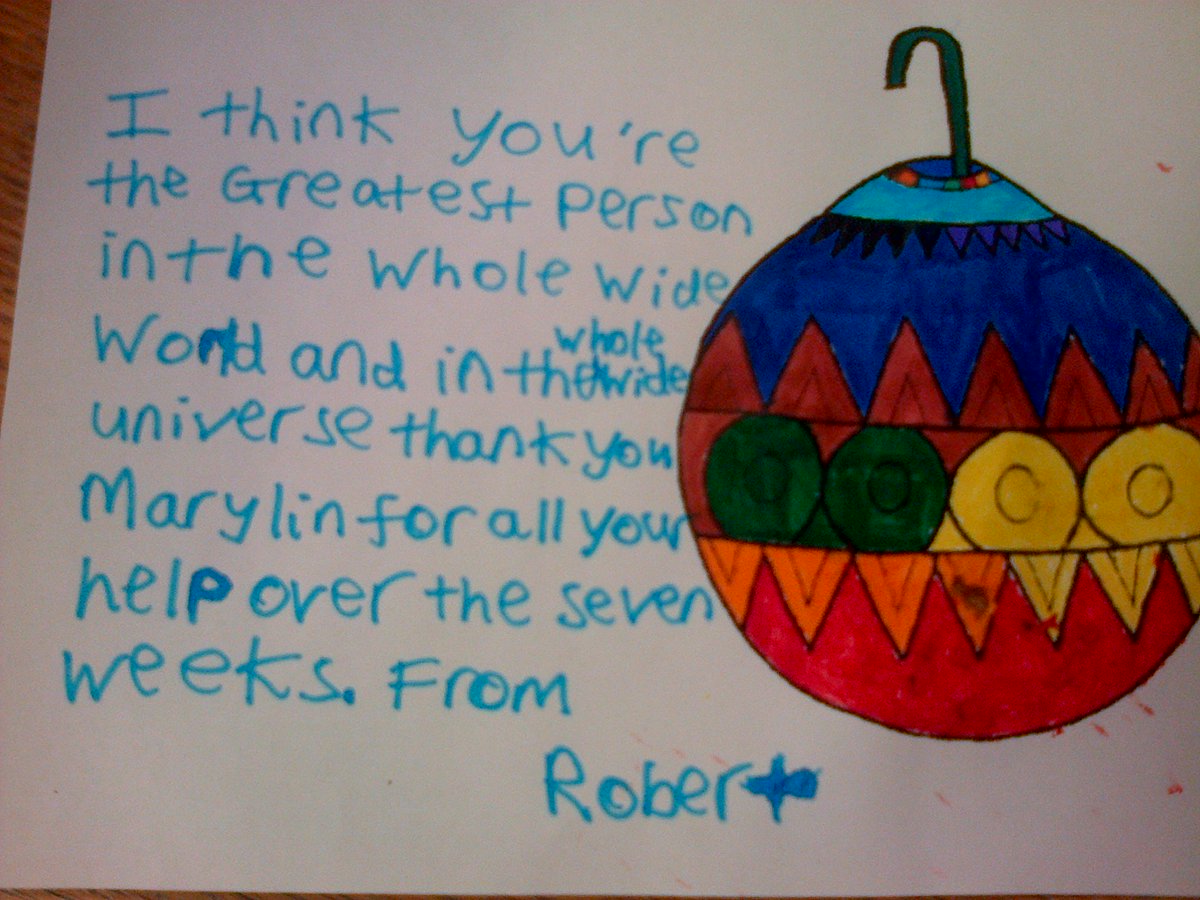 I think you're
the Greatest person
in the whole wide
World and in the whole wide
universe thank you
Marylin for all your
help over the seven
weeks. From
Robert